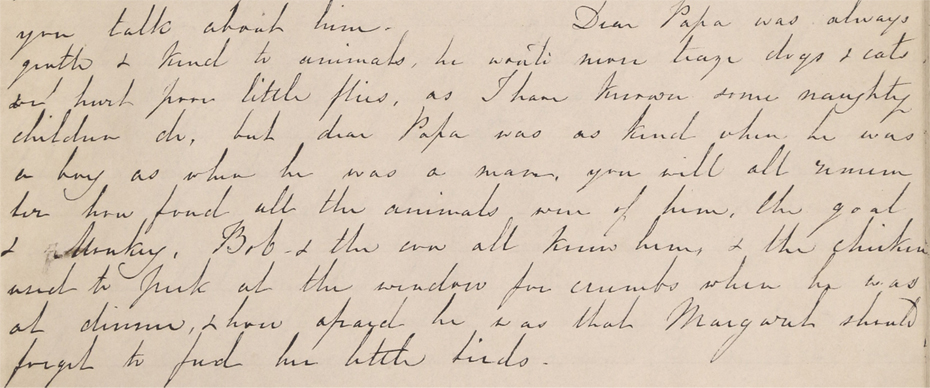 you talk about him. Dear Papa was always
gentle & kind to animals, he would never teaze dogs & cats
or hurt poor little flies, as I have known some naughty
children do, but dear Papa was as kind when he was
a boy as when he was a man, you will all remem
ber how fond all the animals were of him, the goat
& donkey, Bob & the cow all knew him, & the chicken
used to peck at the window for crumbs when he was
at dinner, & how afraid he was that Margaret should
forget to feed her little birds.